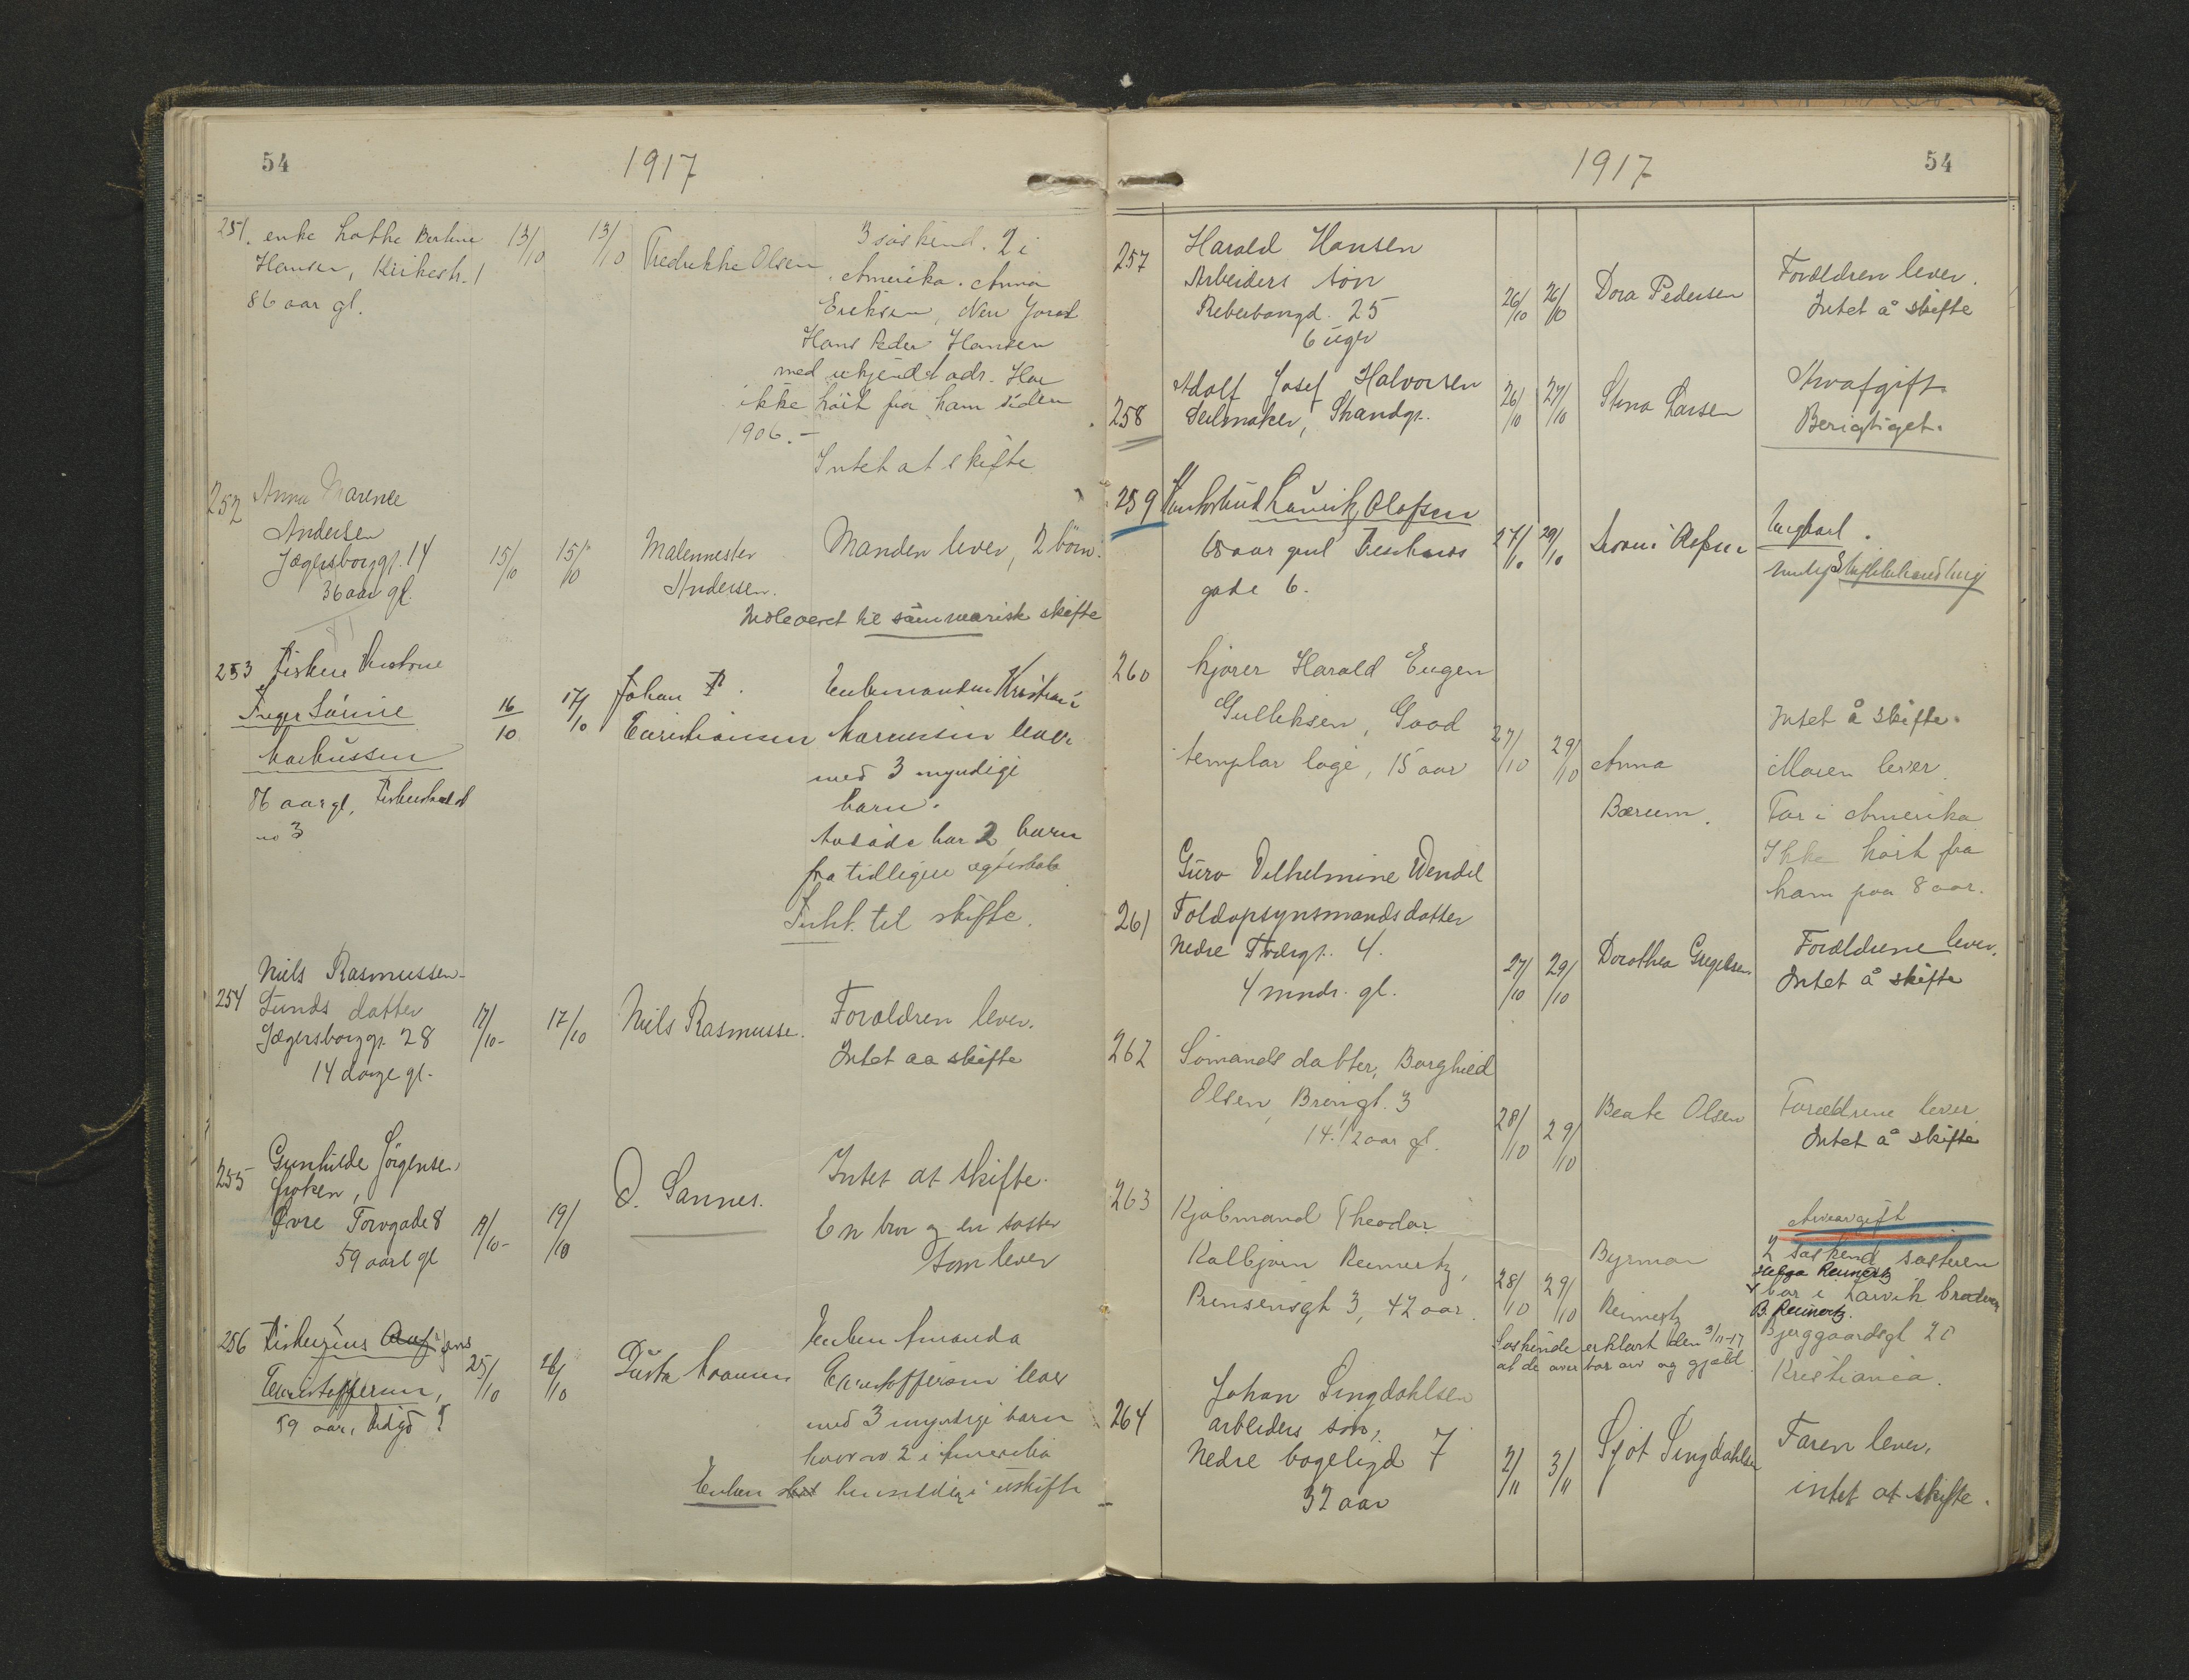 54
1917
251. enke Lothe Berline
Hansen, Kirkestr. 1
86 aar gl.
13/10
13/10
Fredrikke Olsen
3 söskend. 2 i
Amerika. Anna
Eriksen, New York
Hans Peder Hansen
med ukjendt adr. Har
ikke hört fra ham siden
1906.-
Intet at skifte
252 Anna Marence
Andersen
Jægersborggt. 14
36 aar gl.
15/10
15/10
Malermester
Andersen.
Manden lever, 2 börn.
Indleveret til summarisk skifte
253 Fisker
86 aar gl,
no 3
16/10
17/10
Johan
Enkemanden
lever
med 3 myndige
barn.
Avdöde har 2 barn
fra tidligere egteskab
Intet til skifte.
254
Niels Rasmussen-
Lunds datter
Jægersborggt. 28
14 dage gl.
17/10-
17/10
Niels Rasmusse.
Forældren lever.
Intet aa skifte
255
Gunhilde Jörgense,
fröken,
Övre Torvgade 8
59 aar gl
19/10
O. Sannes.
Intet at skifte.
En bror og en söster
som lever
256
59 aar,
25/10
26/10
Enken Amanda
lever
med 3 myndige barn
hvorav 2 i Amerika
Enken
i uskifte
1917
54
257
Harald Hansen
Arbeiders sön
Reberbangd. 25
6 uger
26/10
26/10
Dora Pedersen
Forældren lever.
Intet å skifte
258
Adolf Josef Halvorsen
Seilmaker, Strandgt.
26/10
27/10
Stina Larsen
Arvafgift
Berigtiget.
259
Olafsen
68 aar gml
gade 6.
27/10
29/10
Ungkarl.
Skiftebehandling
260
kjörer Harald Eugen
Gulliksen, Good
templar loge, 15 aar
27/10
29/10
Anna
Bærum.
Intet å skifte.
Moren lever.
Far i Amerika
Ikke hört fra
ham paa 8 aar.
261
Guro Vilhelmine Wendel
Toldopsynsmands datter
Nedre Torvgt. 4.
4 mndr. gl.
27/10
29/10
Dorothea Gregersen
Forældrene lever.
Intet å skifte
262
Sömands datter, Borghild
Olsen, Brengt. 3
14 1/2 aar gl.
28/10
29/10
Beate Olsen
Forældrene lever
Intet å skifte
263
Kjöbmand Theodor
Kolbjörn Reimertz,
Prinsensgt 3, 42 aar.
28/10
29/10
Byrman
Reimertz
Arveavgift
2 söskend, sösteren
Helga Reimertz
bor i Larvik broderen
B. Reimertz.
Bjerggaardsgt 20
Kristiania.
Söskende erklært den 3/11-17
at de overtar arv og gjæld.
264
Johan Lingdahlsen
arbeiders sön,
Nedre bögeligd 7
32 aar
2/11
3/11
Sjöt Lingdahlsen
Faren lever,
intet at skifte.